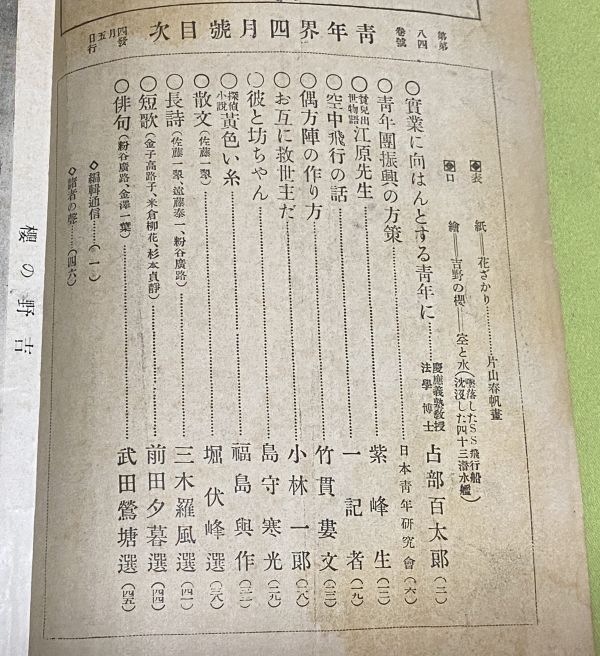 第八卷
第四號
青年界四月號目次
四月五日發行
◆表　紙＝＝花ざかり……片山春帆畫
◆口　繪＝＝吉野の櫻――空と水(墜落したSS飛行船 沈沒した四十三潛水艦)
○實業に向はんとする青年に……慶應義塾教授 法學博士 占部百太郎(二)
○青年團振興の方策……日本青年研究會(六)
○貧兒出世物語 江原先生……紫峰生(一二)
○空中飛行の話……一記者(一九)
○偶方陣の作り方……竹貫婁文(二三)
○お互に救世主だ……小林一郎(二八)
○彼と坊ちやん……島守寒光(二九)
○探偵小説 黃色い糸……福島與作(三二)
○散文(佐藤一翠)……堀伏峰選(三八)
○長詩(佐藤一翠、遠藤泰一、粉谷廣路)……三木羅風選(四一)
○短歌(金子高路子、米倉柳花、杉本貞靜)……前田夕暮選(四四)
○俳句(粉谷廣路、金澤一葉)……武田鶯塘選(四五)
◇編輯通信……(一)
◇諸者の聲……(四六)
櫻の野吉